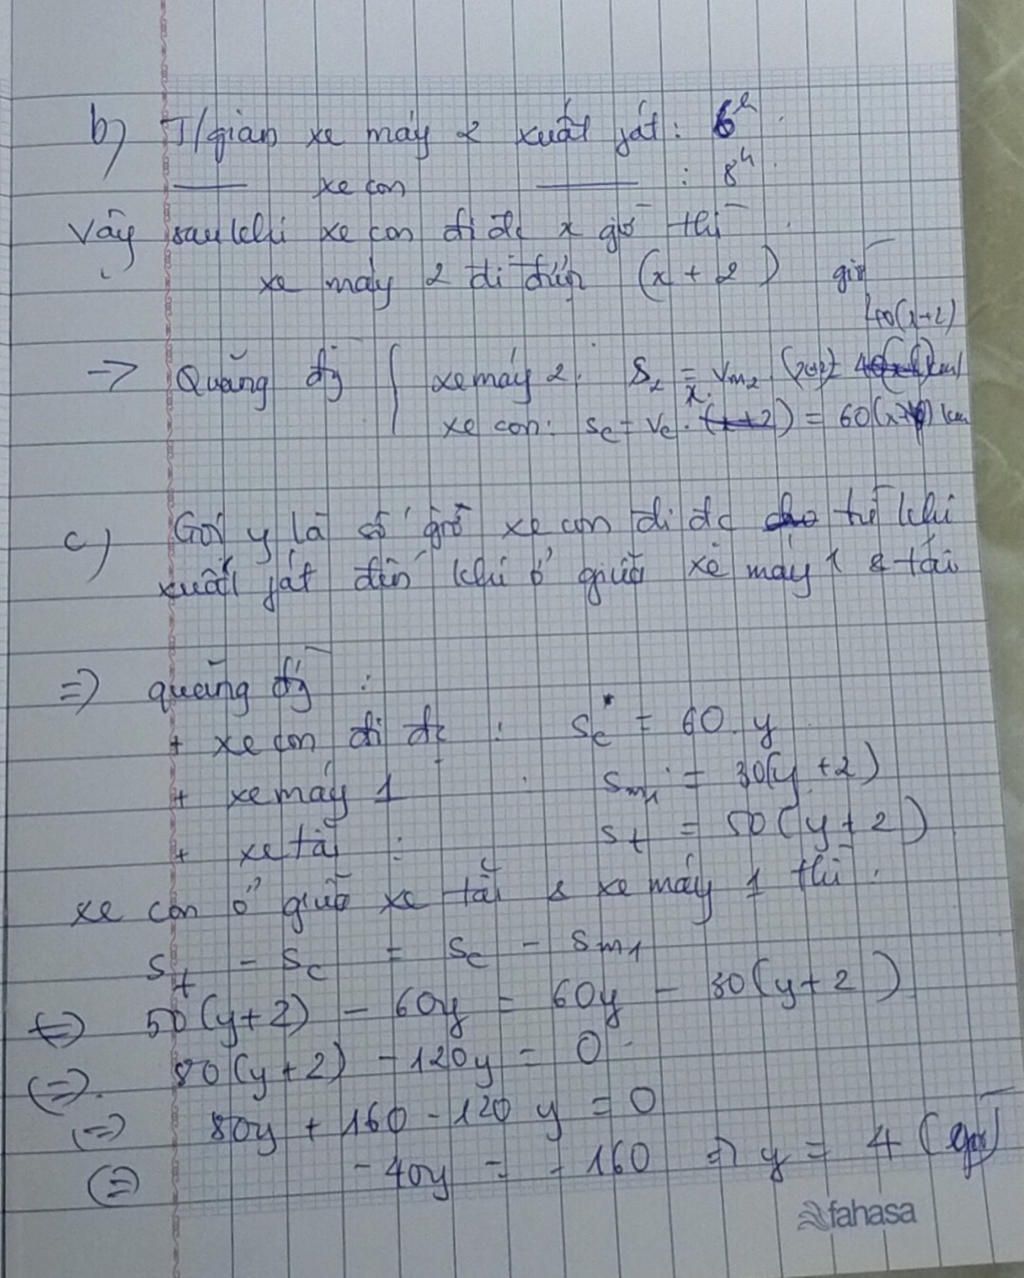 b) T/gian xe máy 2 xuất phát: 6h.
—— xe con —— : 8h.
Vậy sau khi xe con đi đc x giờ thì
xe máy 2 đi được (x + 2) giờ
40(x+2)
=> Quãng đg { xe máy 2: S2 = Vm2 (x+2) = km
x.
xe con: Sc = Vc . (x+2) = 60 km
c) Gọi y là số giờ xe con đi đc từ khi
xuất phát đến khi ở giữa xe máy 1 & tải
=> quãng đg :
+ xe con đi đc : Sc = 60.y
+ xe máy 1 : Sm1 = 30(y+2)
+ xe tải : St = 50(y+2)
xe con ở giữa xe tải & xe máy 1 thì:
St - Sc = Sc - Sm1
<=> 50(y+2) - 60y = 60y - 30(y+2)
<=> 80(y+2) - 120y = 0
<=> 80y + 160 - 120y = 0
<=> -40y = -160 => y = 4 (giờ)
fahasa